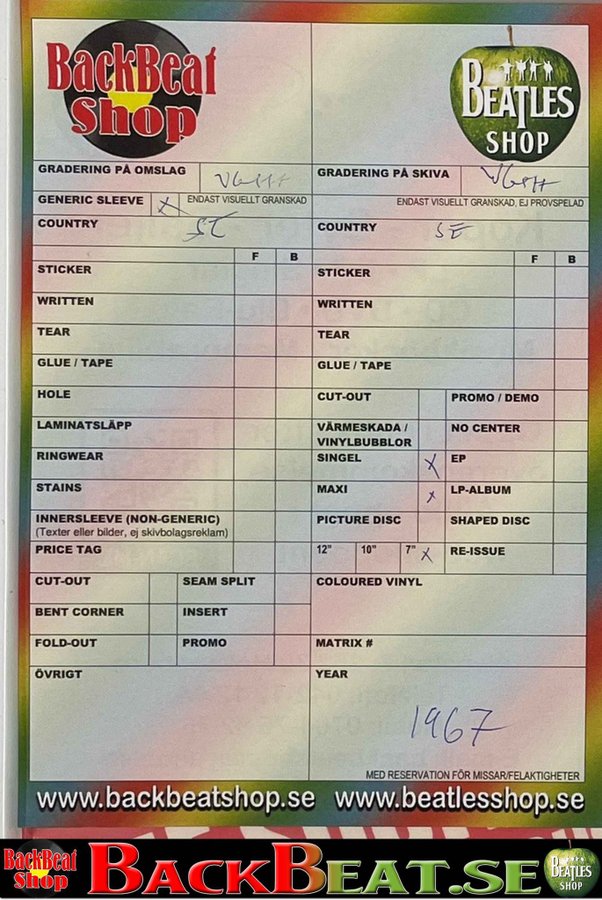 BackBeat
Shop
BEATLES
SHOP
GRADERING PÅ OMSLAG VG++
GRADERING PÅ SKIVA VG++
GENERIC SLEEVE X ENDAST VISUELLT GRANSKAD
ENDAST VISUELLT GRANSKAD, EJ PROVSPELAD
COUNTRY SE
COUNTRY SE
F B
F B
STICKER
STICKER
WRITTEN
WRITTEN
TEAR
TEAR
GLUE / TAPE
GLUE / TAPE
HOLE
CUT-OUT PROMO / DEMO
LAMINATSLÄPP
VÄRMESKADA /
VINYLBUBBLOR
NO CENTER
RINGWEAR
SINGEL X EP
STAINS
MAXI x LP-ALBUM
INNERSLEEVE (NON-GENERIC)
(Texter eller bilder, ej skivbolagsreklam)
PICTURE DISC SHAPED DISC
PRICE TAG
12" 10" 7" X RE-ISSUE
CUT-OUT SEAM SPLIT
COLOURED VINYL
BENT CORNER INSERT
FOLD-OUT PROMO
MATRIX #
ÖVRIGT
YEAR
1967
MED RESERVATION FÖR MISSAR/FELAKTIGHETER
www.backbeatshop.se www.beatlesshop.se
BackBeat
Shop
BACKBEAT.SE
BEATLES
SHOP